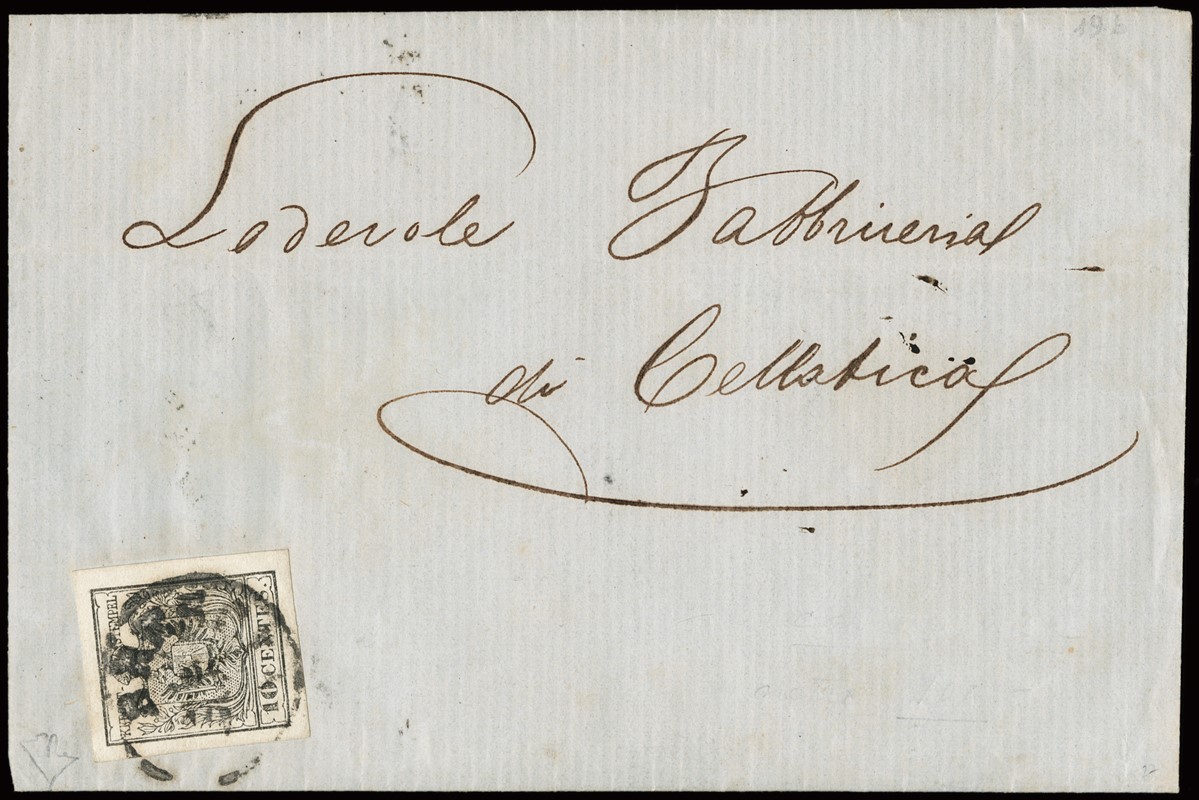 Lodevole Fabbriceria
di Cellatica
10 CENTES.